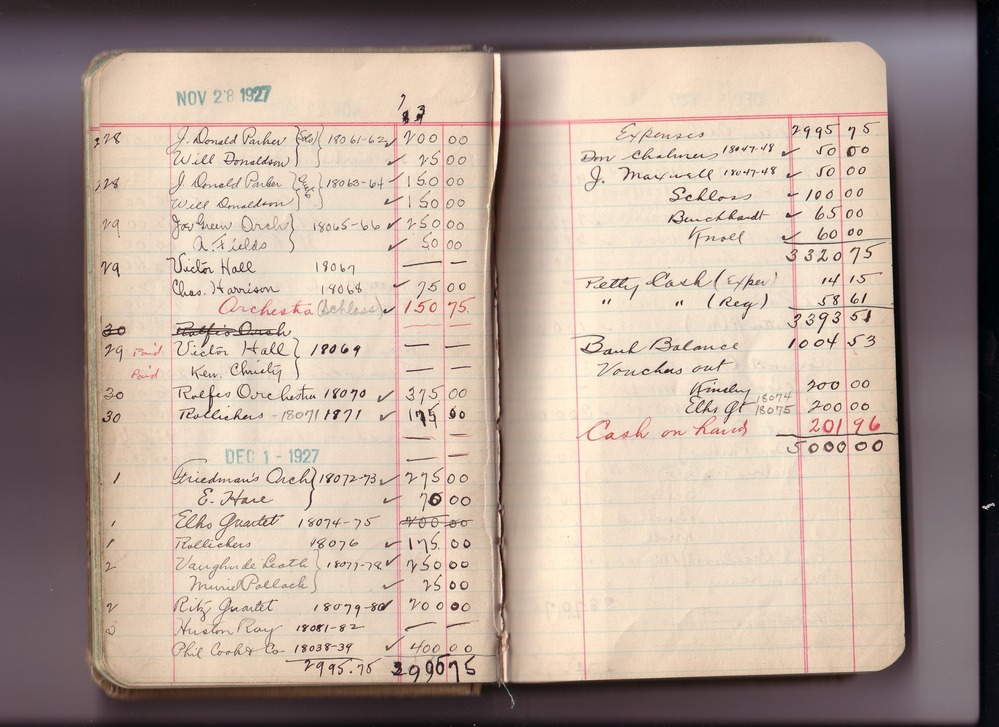 NOV 28 1927
28 J. Donald Parker (Solo) 18061-62 ✓ 200 00
Will Donaldson ✓ 25 00
28 J. Donald Parker 18063-64 ✓ 150 00
Will Donaldson ✓ 150 00
29 Joe Green Orch 18065-66 ✓ 250 00
A. Fields ✓ 50 00
29 Victor Hall 18067 — —
Chas. Harrison 18068 ✓ 75 00
Orchestra (Schloss) ✓ 150 75
30 Rolfe's Orch — —
29 Paid Victor Hall 18069 — —
Paid Ken. Christy — —
30 Rolfes Orchestra 18070 ✓ 375 00
30 Rollichers - 18071 1871 ✓ 175 00
— —
DEC 1 - 1927 — —
1 Friedman's Orch 18072-73 ✓ 275 00
E. Hare ✓ 70 00
1 Elks Quartet 18074-75 200 00
1 Rollichers 18076 ✓ 175 00
2 Vaughn de Leath 18077-78 ✓ 250 00
Muriel Pollack ✓ 25 00
2 Ritz Quartet 18079-80 ✓ 200 00
3 Huston Ray 18081-82 — —
Phil Cook & Co 18038-39 ✓ 400 00
2995.75 2995 75
Expenses 2995 75
Don Chalmers 18047-48 ✓ 50 00
J. Maxwell 18047-48 ✓ 50 00
Schloss ✓ 100 00
Burckhardt ✓ 65 00
Knoll ✓ 60 00
3320 75
Petty Cash (Exper) 14 15
" " (Reg) 58 61
3393 51
Bank Balance 1004 53
Vouchers out
Kinsley 200 00
Elks Qt 18074 18075 200 00
Cash on hand 201 96
5000 00